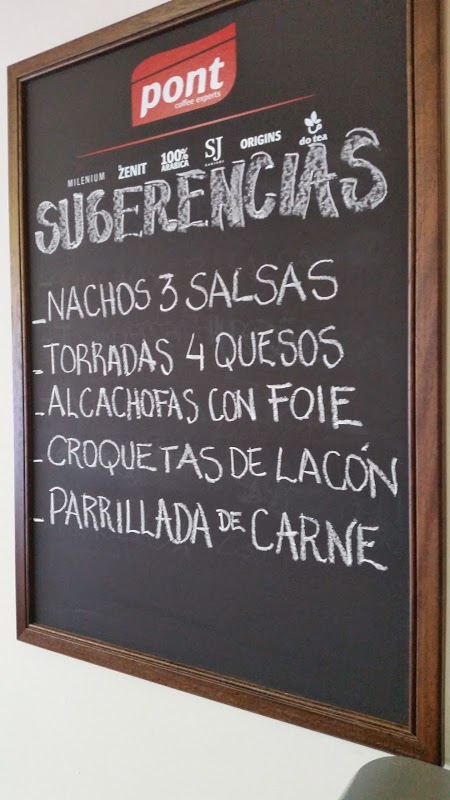 pont
coffee experts
MILENIUM ZENIT 100% ARABICA SJ ORIGINS do tea
SUGERENCIAS
_NACHOS 3 SALSAS
_TORRADAS 4 QUESOS
_ALCACHOFAS CON FOIE
_CROQUETAS DE LACÓN
_PARRILLADA DE CARNE